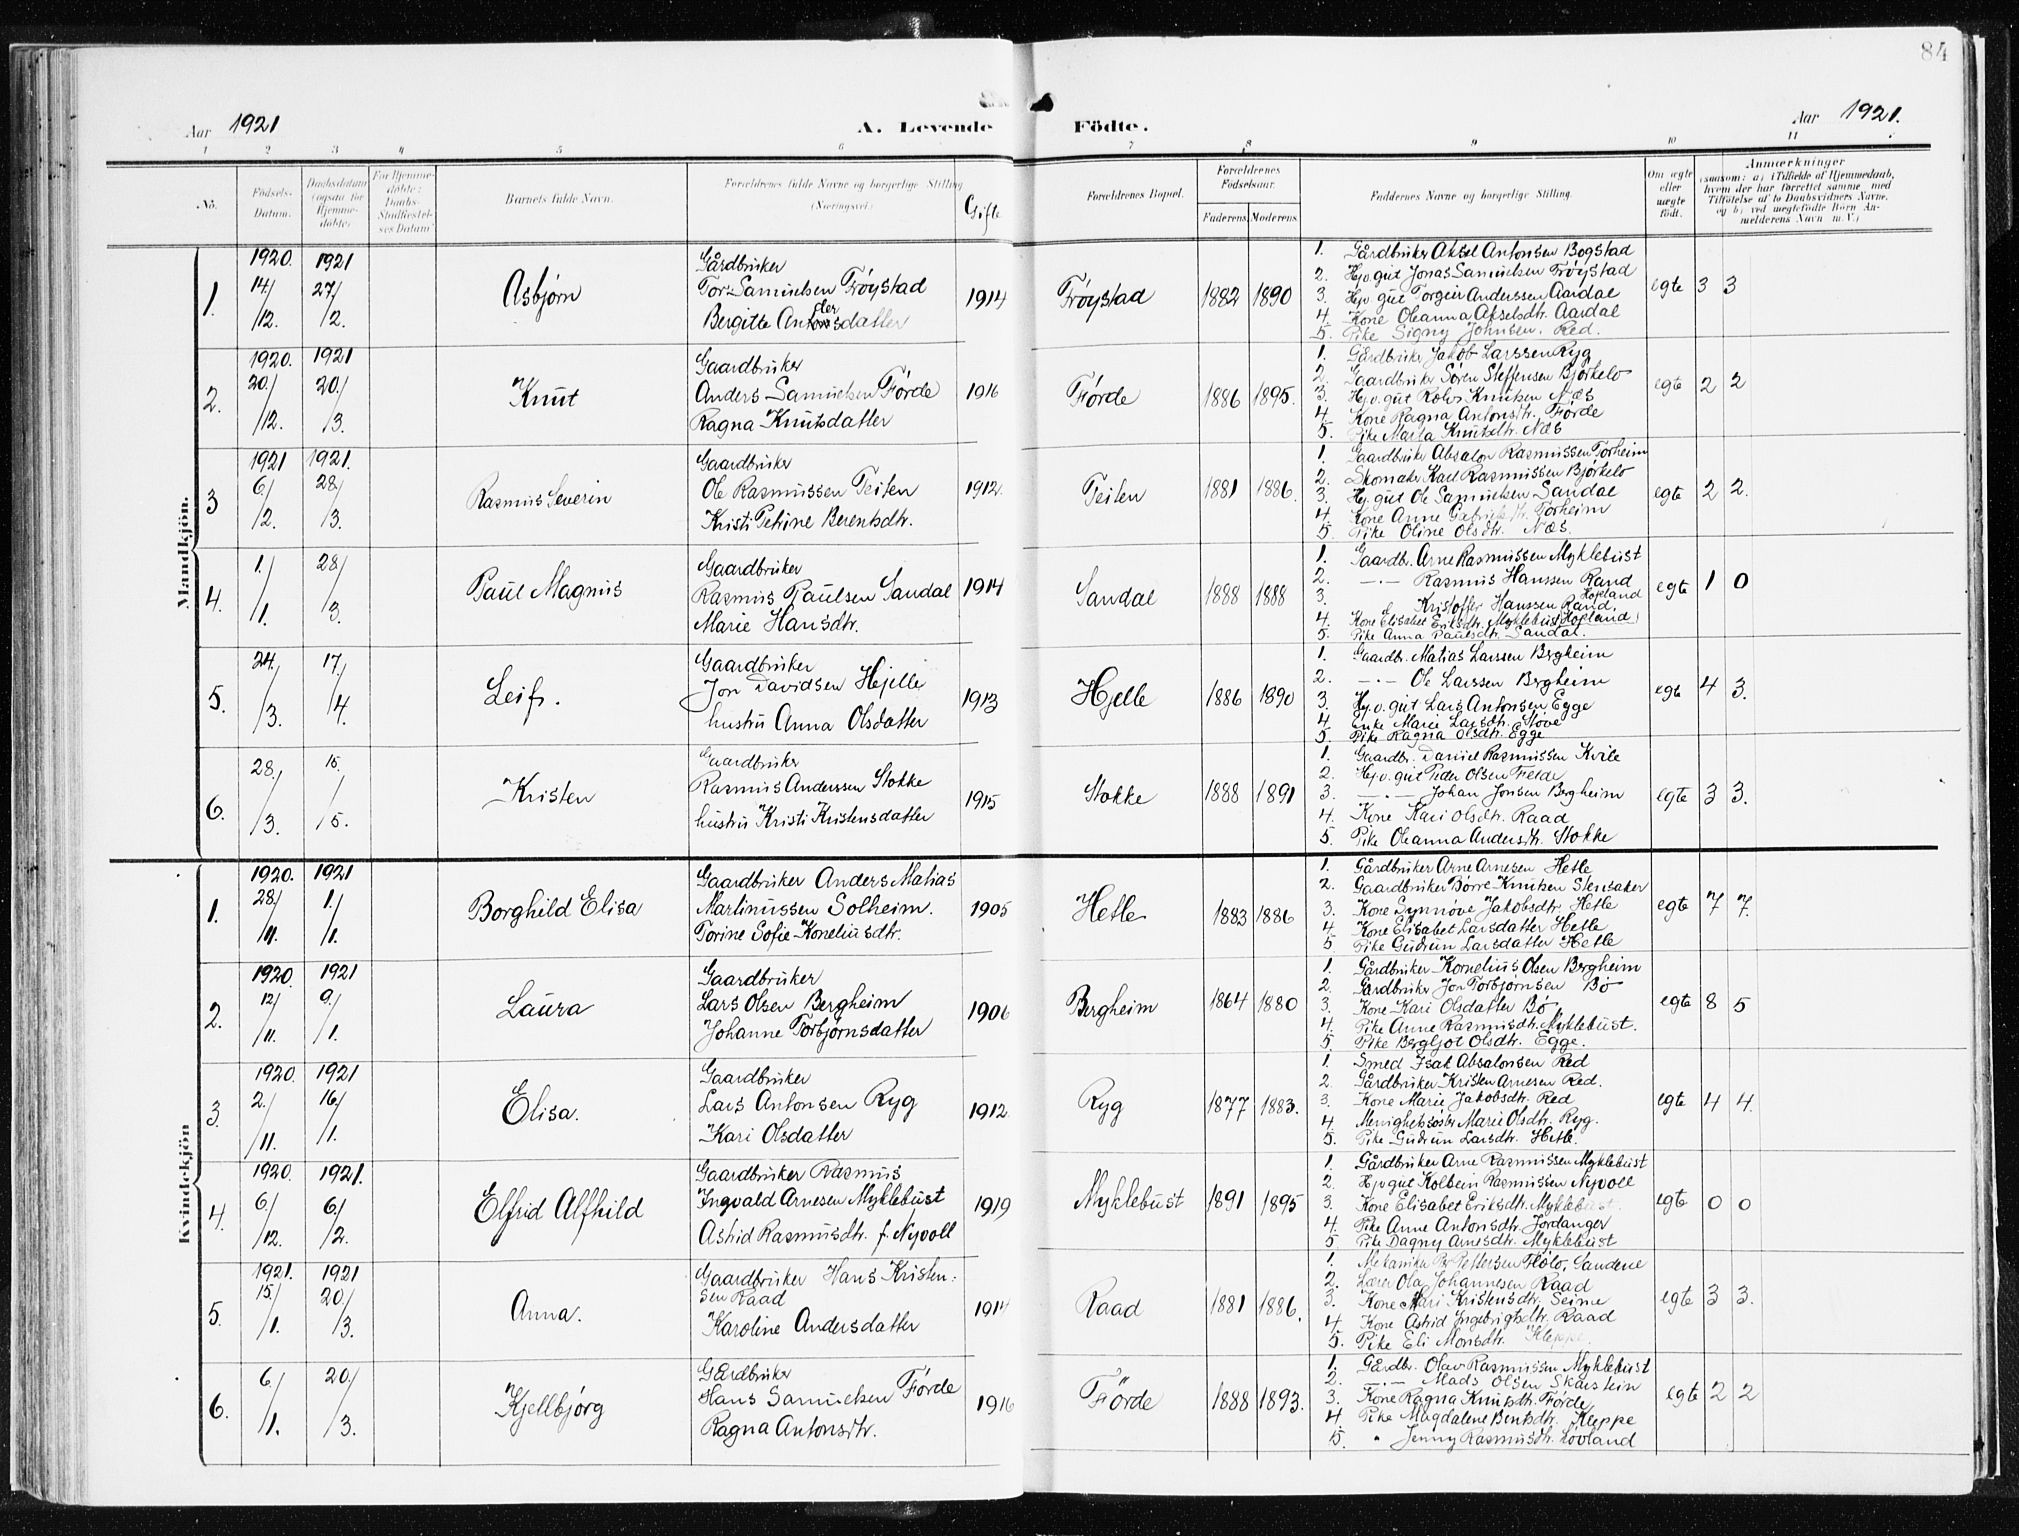 84
Aar 1921
A. Levende Födte.
Aar 1921.
1 2 3 4 5 6 7 8 9 10 11
No.
Födsels-Datum.
Daabsdatum (ogsaa for Hjemme-döbte)
For Hjemme-döbte: Daabs-Stadfæstel-ses Datum
Barnets fulde Navn.
Forældrenes fulde Navne og borgerlige Stilling (Næringsvei.)
Gifte
Forældrenes Bopæl.
Forældrenes Födselsaar.
Faderens. Moderens.
Faddernes Navne og borgerlige Stilling.
Om ægte eller uægte født.
Anmærkninger
(saasom: a) i Tilfælde af Hjemmedaab,
hvem der har forrettet samme med
Tilføielse af to Daabsvidners Navne,
og b) ved uægtefødte Börn An-
melderens Navn m. V.)
Mandkjön.
1. 1920. 14/12. 1921 27/2.
Asbjørn
Gårdbruker
Tor Samuelsen Frøystad
Bergitte Andersdatter
1914
Frøystad
1882 1890
1. Gårdbruker Aksel Antonsen Bogstad
2. Hjv. gut Jonas Samuelsen Frøystad
3. Hjv gut Torgeir Anderssen Aardal
4. Kone Oleanna Akselsdtr. Aardal
5. Pike Signy Johnsen. Red.
egte 3 3
2. 1920. 20/12. 1921 20/3.
Knut
Gaardbruker
Anders Samuelsen Førde
Ragna Knutsdatter
1916
Førde
1886 1895.
1. Gårdbruker Jakob Larssen Ryg
2. Gaardbruker Søren Steffensen Bjørkelo
3. Hj.v. gut Rolv Knutsen Næs
4. Kone Ragna Antonsdtr. Førde
5. Pike Marta Knutsdtr. Næs
egte 2 2
3 1921 6/2. 1921. 28/3.
Rasmus Severin
Gaardbruker
Ole Rasmussen Teilen
Kristi Petrine Berentsdtr.
1912.
Teilen
1881 1886.
1. Gaardbruker Absalon Rasmussen Torheim
2. Skomaker Karl Rasmussen Bjørkelo
3. Hj. gut Ole Samuelsen Sandal
4. Kone Anne Gabrielsdtr. Torheim
5. Pike Oline Olsdtr. Næs.
egte 2 2.
4. 1/1. 28/3.
Paul Magnus
Gaardbruker
Rasmus Paulsen Sandal
Marie Hansdtr.
1914
Sandal
1888 1888
1. Gaardbr. Arne Rasmussen Myklebust
2. —·— Rasmus Hanssen Rand
3. Kristoffer Hanssen Rand, Hopland
4. Kone Elisabet Eriksdtr. Myklebust (Hopland)
5. Pike Anna Paulsdtr. Sandal.
egte 1 0
5. 24/3. 17/4.
Leif.
Gaardbruker
Jon Davidsen Hjelle
hustru Anna Olsdatter
1913
Hjelle
1886 1890
1. Gaardbr. Matias Larssen Bergheim
2. —·— Ole Larssen Bergheim
3. Hj.v. gut Lars Antonsen Egge
4. Enke Marie Larsdtr. Støve
5. Pike Ragna Olsdtr. Egge
egte 4 3.
6. 28/3. 15/5.
Kristen
Gaardbruker
Rasmus Anderssen Stokke
hustru Kristi Kristensdatter
1915
Stokke
1888 1891
1. Gaardbr. Daniel Rasmussen Kvile
2. Hj.v. gut Peder Olsen Feide
3. —·— Johan Jonsen Bergheim
4. Kone Kari Olsdtr. Raad
5. Pike Oleanna Andersdtr. Stokke
egte 3 3.
Kvindekjön
1. 1920. 28/11. 1921 1/1.
Borghild Elisa
Gaardbruker Anders Matias
Martinussen Solheim.
Torine Sofie Korneliusdtr.
1905
Hetle
1883 1886
1. Gårdbruker Arne Arnesen Hetle
2. Gaardbruker Børre Knutsen Stensaker
3. Kone Synnøve Jakobsdtr. Hetle
4. Kone Elisabet Larsdatter Hetle
5 Pike Gudrun Larsdatter Hetle
egte 7 7.
2. 1920. 12/11. 1921 9/1.
Laura
Gaardbruker
Lars Olsen Bergheim
Johanne Torbjørnsdatter
1906
Bergheim
1864 1880
1. Gårdbruker Kornelius Olsen Bergheim
2. Gårdbruker Jon Torbjørnsen Bø
3. Kone Kari Olsdatter Bø
4. Pike Anne Rasmusdtr. Myklebust.
5 Pike Bergljot Olsdtr. Egge.
egte 8 5
3. 1920. 2/11. 1921 16/1.
Elisa.
Gaardbruker
Lars Antonsen Ryg
Kari Olsdatter
1912
Ryg
1877 1883.
1. Smed Isak Absalonsen Red
2. Gårdbruker Kristen Arnesen Red.
3. Kone Marie Jakobsdtr. Red
4. Menighetssøster Marie Olsdtr. Ryg.
5. Pike Gudrun Larsdtr. Hetle.
egte 4 4.
4. 1920. 6/12. 1921. 6/2.
Elfrid Alfhild
Gaardbruker Rasmus
Ingvald Arnesen Myklebust
Astrid Rasmusdtr. f. Nyvoll
1919
Myklebust
1891 1895
1. Gårdbruker Arne Rasmussen Myklebust
2. Hjv gut Kolbein Rasmussen Nyvoll
3. Kone Elisabet Eriksdtr. Myklebust
4. Pike Anne Antonsdtr. Jordanger
5. Pike Dagny Arnesdtr. Myklebust
egte 0 0
5. 1921. 15/1. 1921 20/3.
Anna.
Gaardbruker Hans Kristen-
sen Raad
Karoline Andersdatter
1914
Raad
1881 1886.
1. Mekaniker Per Pettersen Flølo, Sandene
2. Lærer Ola Johannesen Raad
3. Kone Mari Kristensdtr. Seime
4. Kone Astrid Ingebrigtsdtr. Raad
5. Pike Eli Monsdtr. Kleppe.
egte 3 3.
6. 6/1. 20/3.
Kjellbjørg
Gårdbruker
Hans Samuelsen Førde
Ragna Antonsdtr.
1916
Førde
1888 1893.
1. Gårdbr. Olav Rasmussen Myklebust
2. —·— Mads Olsen Skarstein
3. Kone Ragna Knutsdtr. Førde
4. Pike Magdalene Bentsdtr. Kleppe
5. " Jenny Rasmusdtr. Løvland
egte 2 2